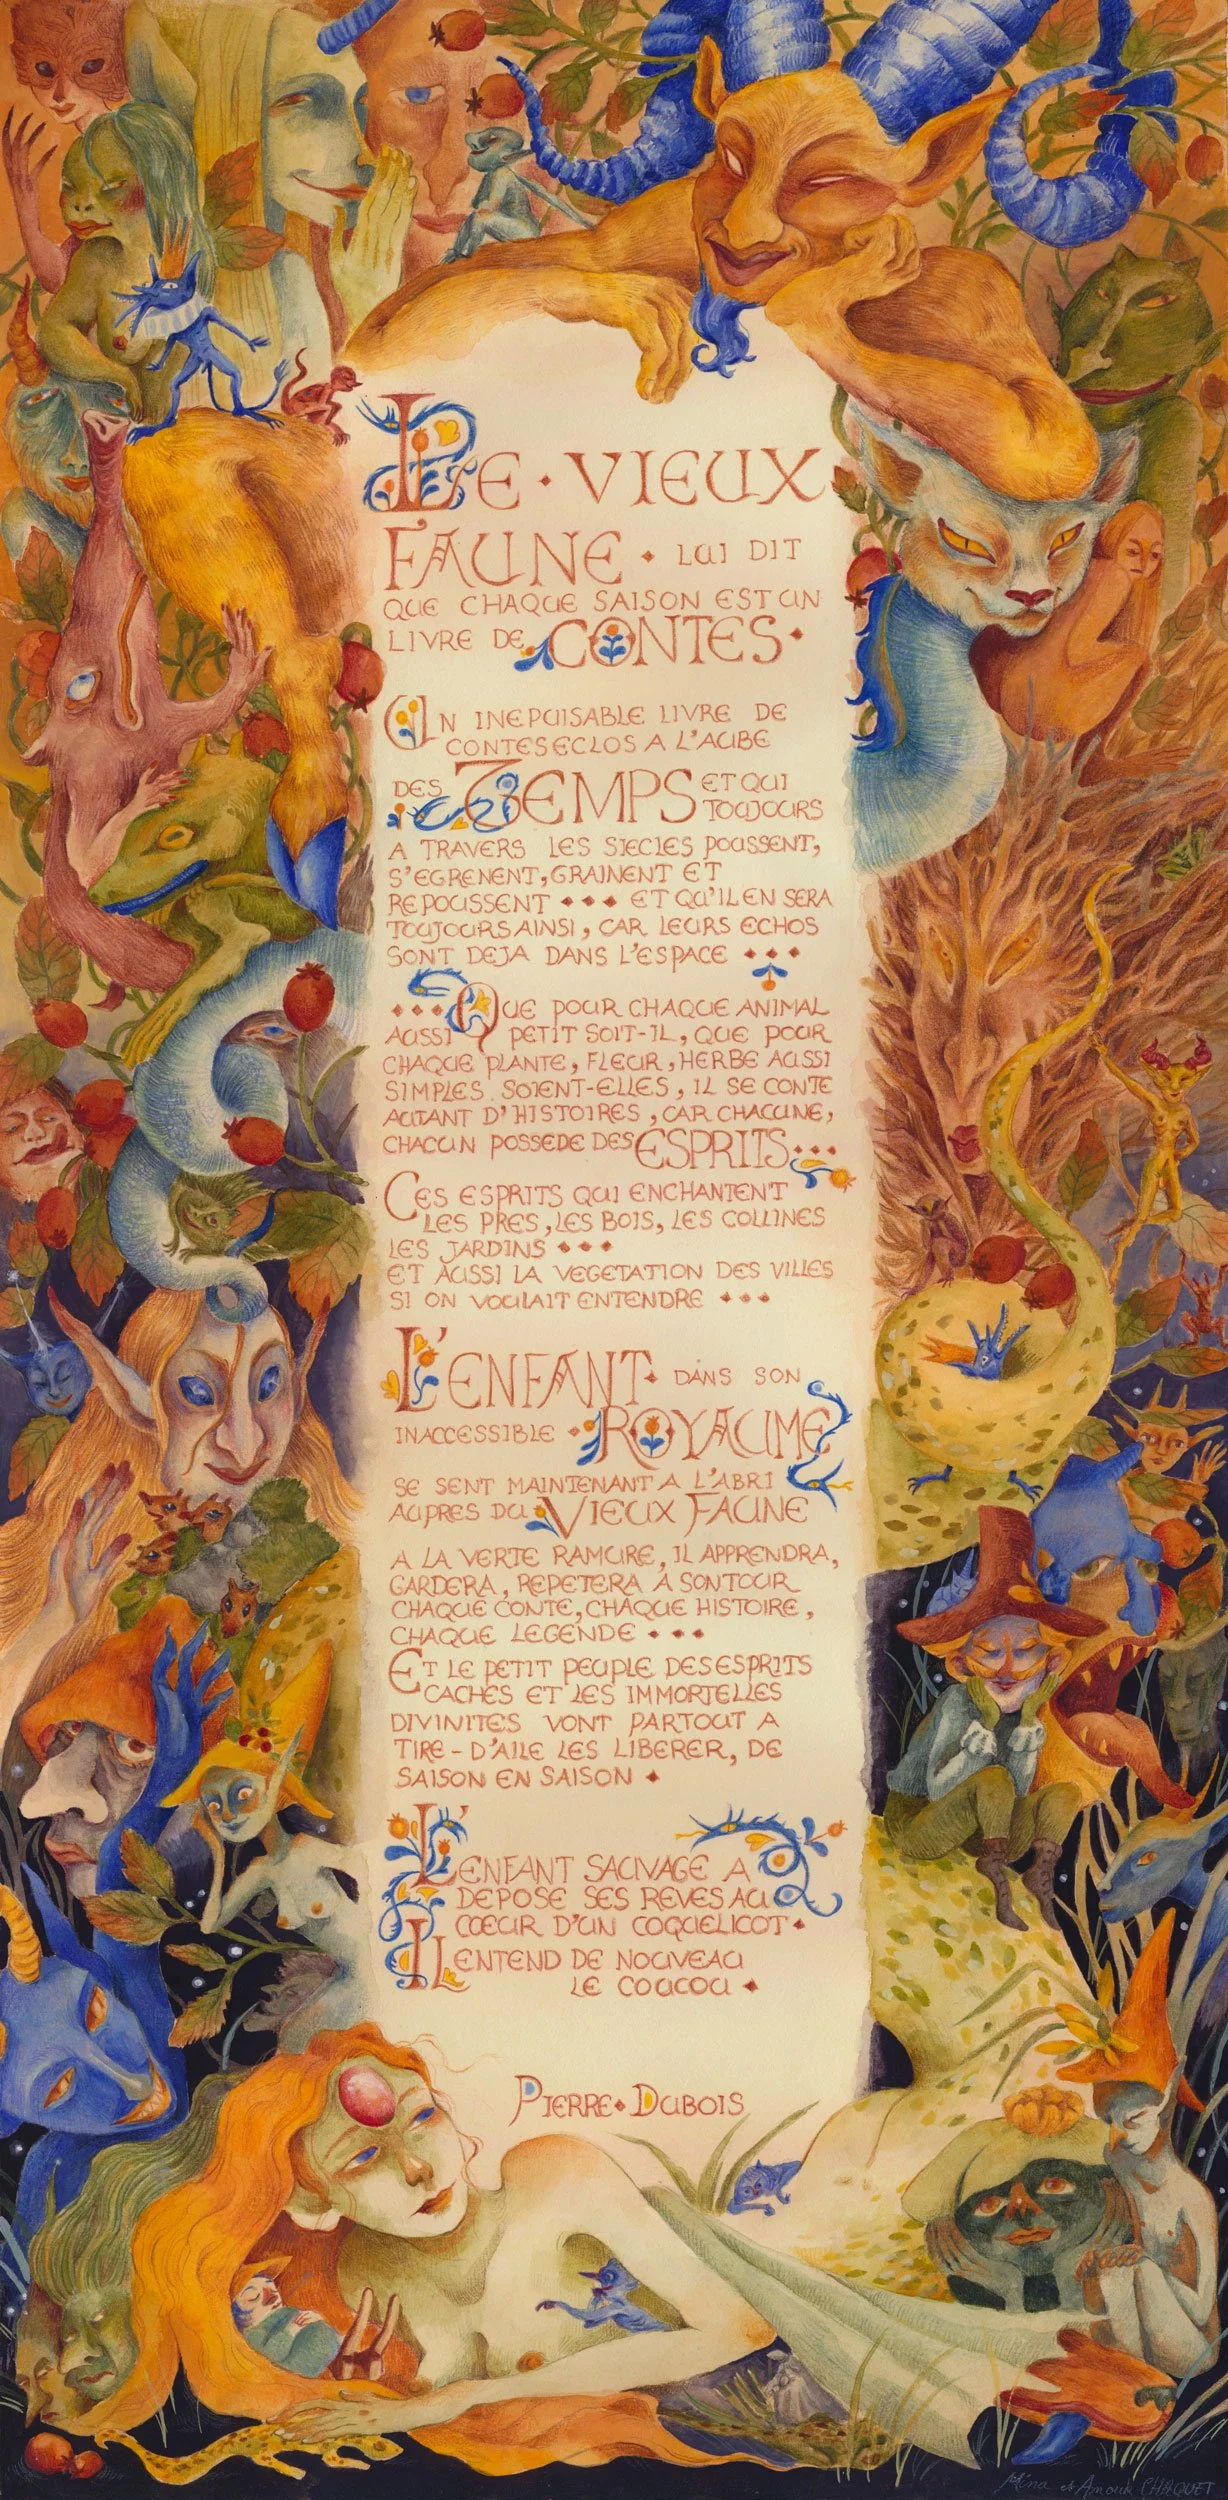 LE · VIEUX
FAUNE · LUI DIT
QUE CHAQUE SAISON EST UN
LIVRE DE CONTES ·
UN INEPUISABLE LIVRE DE
CONTES ECLOS A L'AUBE
DES TEMPS ET QUI
TOUJOURS
A TRAVERS LES SIECLES POUSSENT,
S'EGRENENT, GRAINENT ET
REPOUSSENT ··· ET QU'IL EN SERA
TOUJOURS AINSI, CAR LEURS ECHOS
SONT DEJA DANS L'ESPACE ···
··· QUE POUR CHAQUE ANIMAL
AUSSI PETIT SOIT-IL, QUE POUR
CHAQUE PLANTE, FLEUR, HERBE AUSSI
SIMPLES SOIENT-ELLES, IL SE CONTE
AUTANT D'HISTOIRES, CAR CHACUNE,
CHACUN POSSEDE DES ESPRITS ···
CES ESPRITS QUI ENCHANTENT
LES PRES, LES BOIS, LES COLLINES
LES JARDINS ···
ET AUSSI LA VEGETATION DES VILLES
SI ON VOULAIT ENTENDRE ···
L'ENFANT · DANS SON
INACCESSIBLE · ROYAUME
SE SENT MAINTENANT A L'ABRI
AUPRES DU VIEUX FAUNE
A LA VERTE RAMURE, IL APPRENDRA,
GARDERA, REPETERA A SON TOUR
CHAQUE CONTE, CHAQUE HISTOIRE,
CHAQUE LEGENDE ···
ET LE PETIT PEUPLE DES ESPRITS
CACHES ET LES IMMORTELLES
DIVINITES VONT PARTOUT A
TIRE-D'AILE LES LIBERER, DE
SAISON EN SAISON ·
L'ENFANT SAUVAGE A
DEPOSE SES REVES AU
CŒUR D'UN COQUELICOT ·
IL ENTEND DE NOUVEAU
LE COUCOU ·
PIERRE · DUBOIS
Mina et Amour CHAQUET